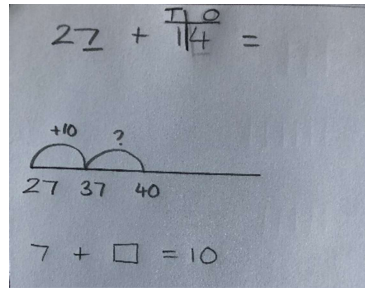 T O
27 + 14 =
+10 ?
27 37 40
7 + □ = 10